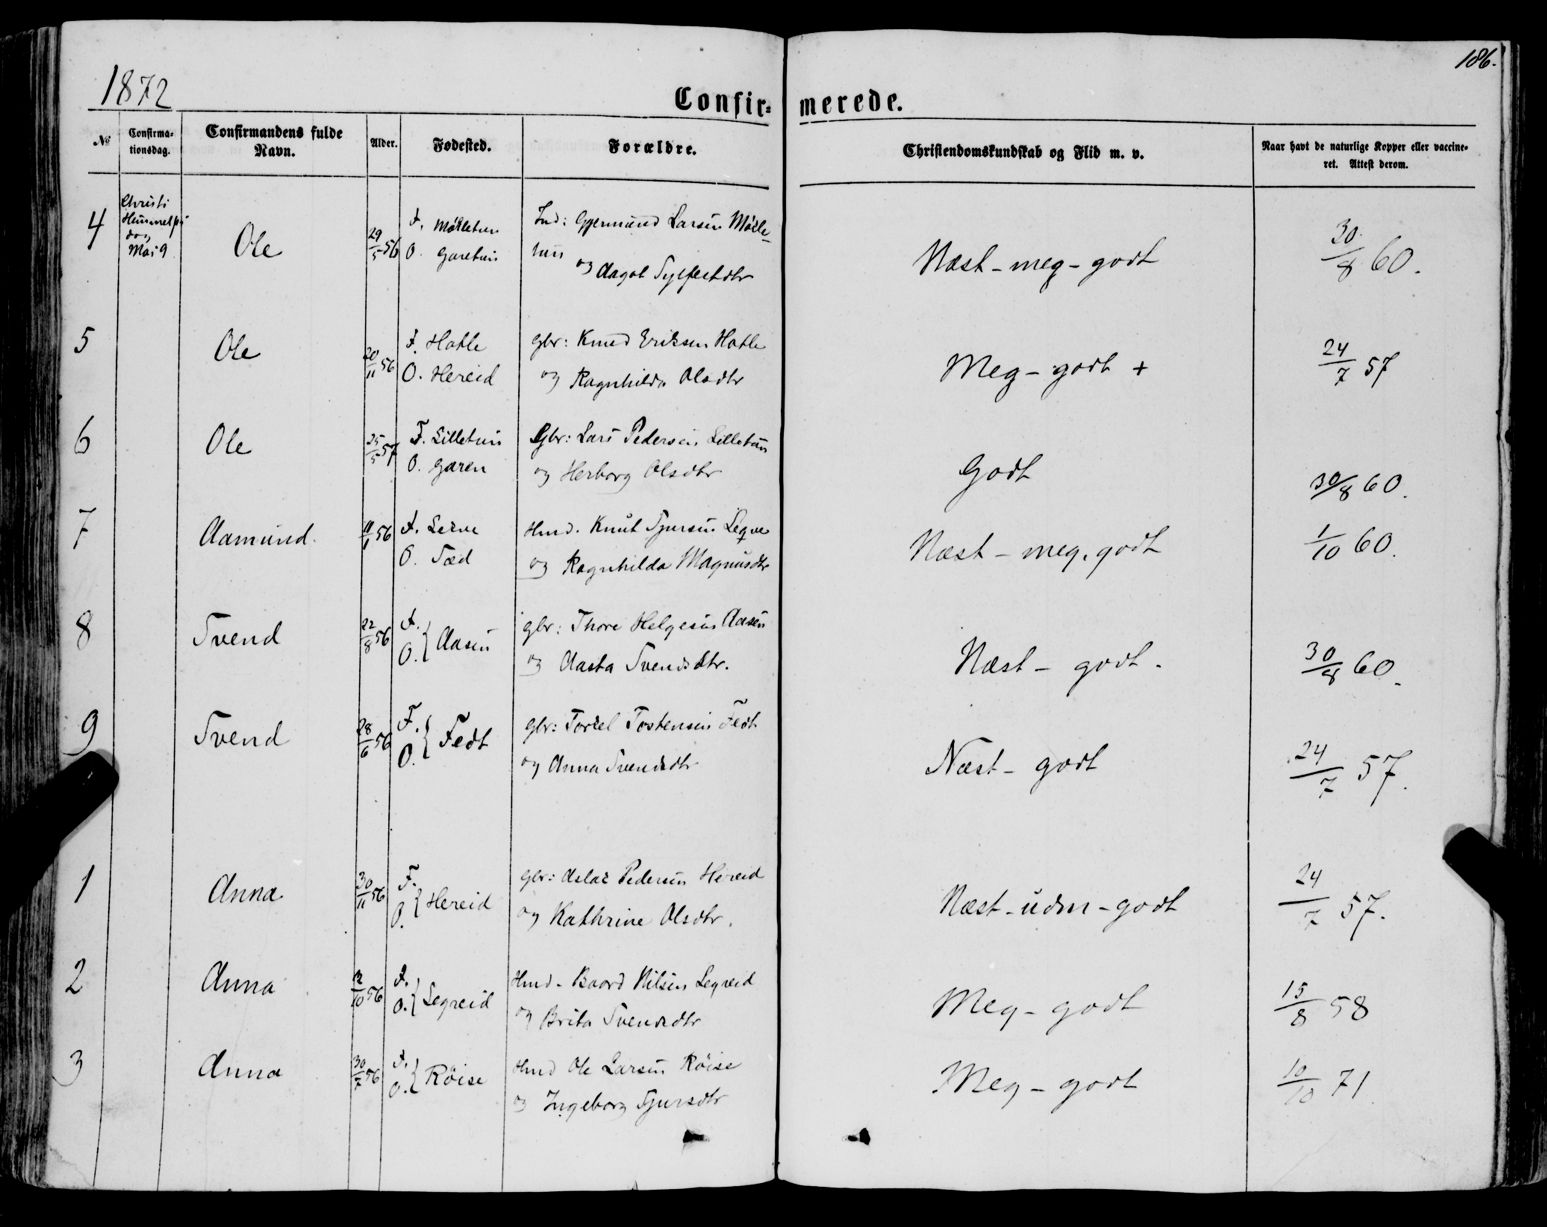 186.
1872
Confir= merede.
No Confirma- tionsdag. Confirmandens fulde Navn. Alder. Fødested. Forældre. Christendomskundskab og Flid m. v. Naar havt de naturlige Kopper eller vaccine- ret. Attest derom.
Christi
Himmelf:
dag
Mai 9
4 Ole 29/5 56 F. Mækletun Ind: Gjermund Larsen Mækle-
O. Garetun tun og Aagot Sylfestdtr Næst-meg-godt 30/8 60.
5 Ole 20/11 56 F. Hatle gbr: Knud Eriksen Hatle
O. Hereid og Ragnhilda Olsdtr Meg-godt + 24/7 57
6 Ole 25/5 57 F. Lilletun Gbr: Lars Pedersen Lilletun
O. Garen og Herborg Olsdtr Godt 30/8 60.
7 Aamund 11/1 56 F. Leqve Hmd. Knut Sjursen Leqve
O. Sæd og Ragnhilda Magnusdtr Næst-meg. godt 1/10 60.
8 Svend 22/8 56 F. O. { Aasen gbr: Thore Helgesen Aasen
og Aasta Svendsdtr. Næst- godt. 30/8 60.
9 Svend 28/6 56 F. O. { Fedt gbr: Torkel Tostensen Fedt
og Anna Svendsdtr Næst- godt 24/7 57.
1 Anna 30/11 56 F. O. { Hereid gbr: Aslak Pedersen Hereid
og Kathrine Olsdtr. Næst-udm-godt 24/7 57.
2 Anna 12/10 56 F. O. { Legreid Hmd- Baard Nilsen Legreid
og Brita Svendsdtr Meg-godt 15/8 58
3 Anna 30/7 56 F. O. { Røise Hmd Ole Larsen Røise
og Ingeborg Sjursdtr Meg-godt 10/10 71